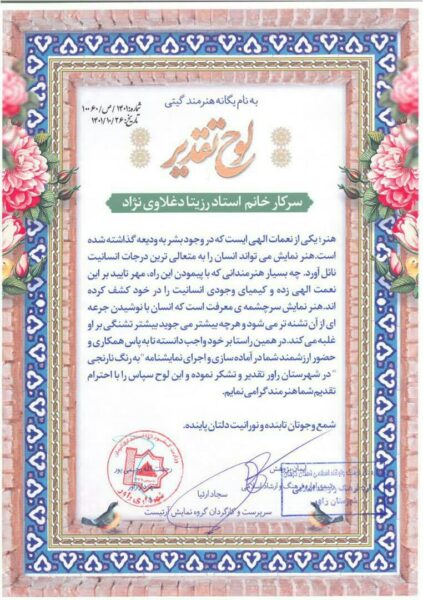 به نام یگانه هنرمند گیتی
شماره: ۱۴۰۱/ص/۱۰۰۶۰
تاریخ: ۱۴۰۱/۱۰/۲۶
لوح تقدیر
سرکار خانم استاد رزیتا دغلاوی نژاد
هنر؛ یکی از نعمات الهی ایست که در وجود بشر به ودیعه گذاشته شده
است. هنر نمایش می تواند انسان را به متعالی ترین درجات انسانیت
نائل آورد. چه بسیار هنرمندانی که با پیمودن این راه، مهر تایید بر این
نعمت الهی زده و کیمیای وجودی انسانیت را در خود کشف کرده
اند. هنر نمایش سرچشمه ی معرفت است که انسان با نوشیدن جرعه
ای از آن تشنه تر می شود و هرچه بیشتر می جوید بیشتر تشنگی بر او
غلبه می کند. در همین راستا بر خود واجب دانسته تا به پاس همکاری و
حضور ارزشمند شما در آماده سازی و اجرای نمایشنامه "به رنگ نارنجی
" در شهرستان راور تقدیر و تشکر نموده و این لوح سپاس را با احترام
تقدیم شما هنرمند گرامی نمایم.
شمع وجودتان تابنده و نورانیت دلتان پاینده.
سجاد ارثیا
سرپرست و کارگردان گروه نمایش آرتیست
شهرداری راور